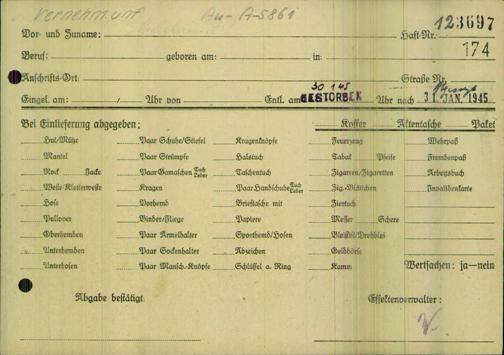 Vernehm.unf Au-A-5861
123697
Vor- und Zuname: Haft-Nr.
174
Beruf: geboren am: in:
Anschrifts-Ort: Straße Nr.
30 1 45
Eingel. am: / Uhr von Entl. am GESTORBEN Uhr nach 31. JAN. 1945
Bei Einlieferung abgegeben: Koffer Aktentasche Paket
Hut/Mütze Paar Schuhe/Stiefel Kragenknöpfe Feuerzeug Wehrpaß
Mantel Paar Strümpfe Halstuch Tabak Pfeife Fremdenpaß
Rock Jacke Paar Gamaschen Tuch Leder Taschentuch Zigarren/Zigaretten Arbeitsbuch
Weste/Kletterweste Kragen Paar Handschuhe Tuch Leder Zig.-Blättchen Invalidenkarte
Hose Vorhemd Brieftasche mit Ziertuch
Pullover Binder/Fliege Papiere Messer Schere
Oberhemden Paar Ärmelhalter Sporthemd/Hosen Bleistift/Drehblei
Unterhemden Paar Sockenhalter Abzeichen Geldbörse
Unterhosen Paar Mansch.-Knöpfe Schlüssel a. Ring Kamm Wertsachen: ja—nein
Abgabe bestätigt: Effektenverwalter: